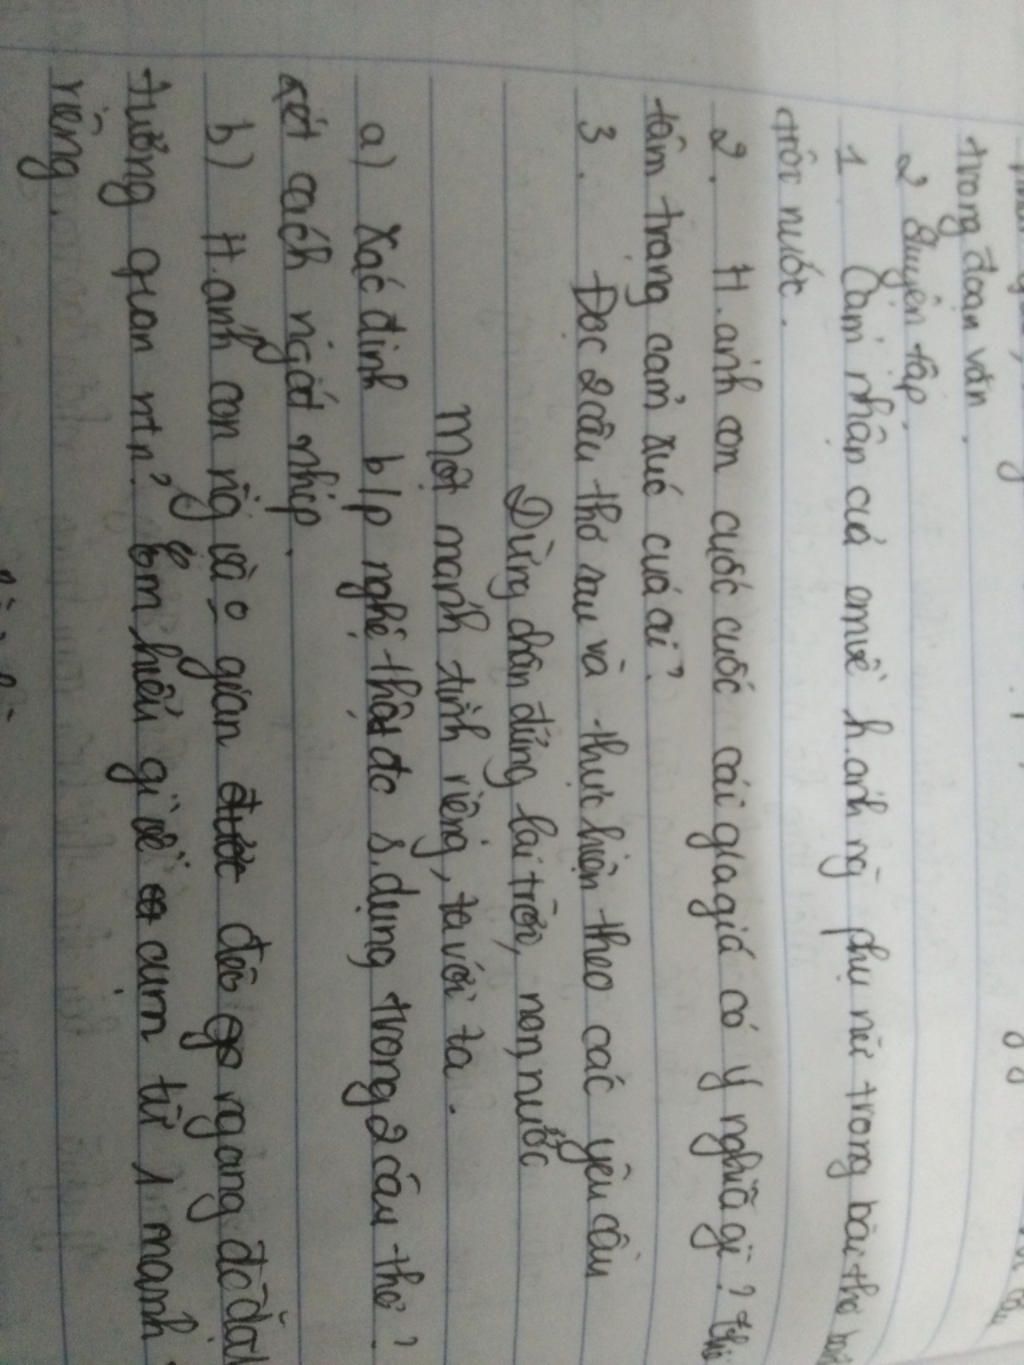 trong đoạn văn.
2 Luyện tập
1. Cảm nhận của em về h.ảnh ng̃ phụ nữ trong bài thơ bánh
trôi nước.
2. H.ảnh con cuốc cuốc cái gia gia có ý nghĩa gì? thể
tâm trạng cảm xúc của ai?
3. Đọc 2 câu thơ sau và thực hiện theo các yêu cầu
Dừng chân đứng lại trời, non, nước
Một mảnh tình riêng, ta với ta.
a) Xác định b/p nghệ thật đc s.dụng trong 2 câu thơ?
xét cách ngắt nhịp.
b) H.ảnh con ng̃ và o gian đèo ngang đc đặt
tương quan ntn? Em hểu gì về cụm từ 1 mảnh
riêng.